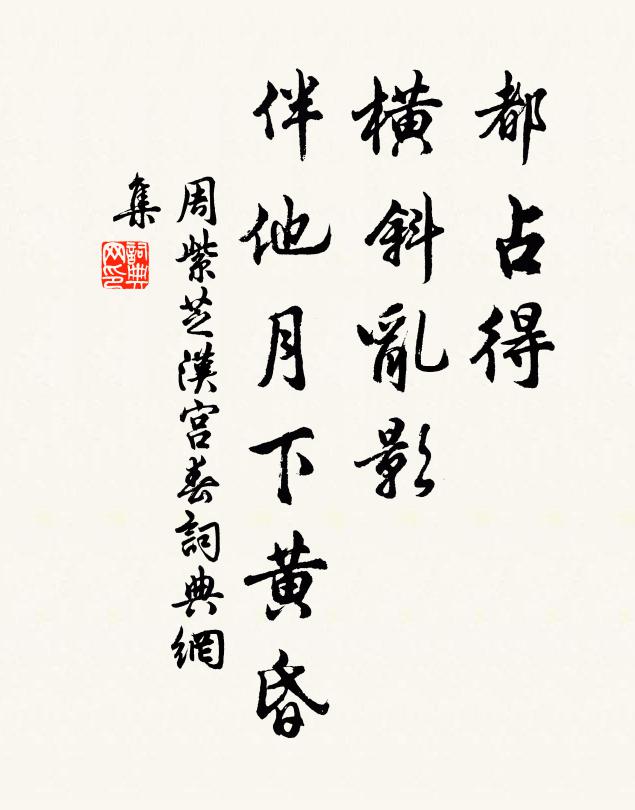 都占得
橫斜亂影
伴他月下黄昏
周紫芝漢宮春詞典網
集
詞典网印